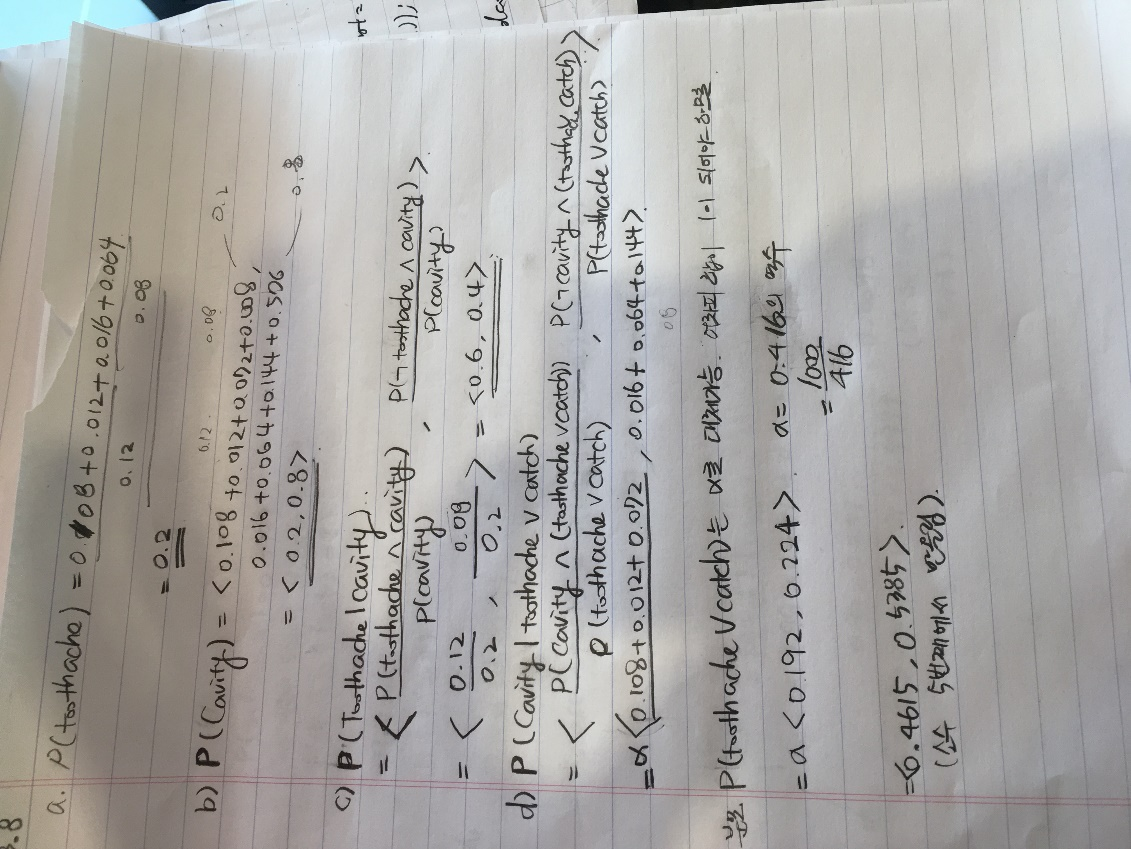 3.8
a. P(toothache) = 0.108 + 0.012 + 0.016 + 0.064
0.12 0.08
= 0.2
0.12 0.08
b) P(Cavity) = <0.108 + 0.012 + 0.072 + 0.008, 0.2
0.016 + 0.064 + 0.144 + 0.576 0.8
= <0.2, 0.8>
c) P(Toothache | cavity)
= < P(toothache ∧ cavity) / P(cavity) , P(¬ toothache ∧ cavity) / P(cavity) >
= < 0.12 / 0.2 , 0.08 / 0.2 > = <0.6, 0.4>
d) P(Cavity | toothache ∨ catch)
= < P(cavity ∧ (toothache ∨ catch)) / P(toothache ∨ catch) , P(¬cavity ∧ (toothache ∨ catch)) / P(toothache ∨ catch) >
= α<0.108 + 0.012 + 0.072, 0.016 + 0.064 + 0.144>
08
분모 P(toothache ∨ catch)는 α로 대체가능. 어차피 합이 1이 되어야 하므로.
= α <0.192, 0.224> α = 0.416의 역수
= 1000 / 416
= <0.4615, 0.5385>
(소수 5번째에서 반올림).